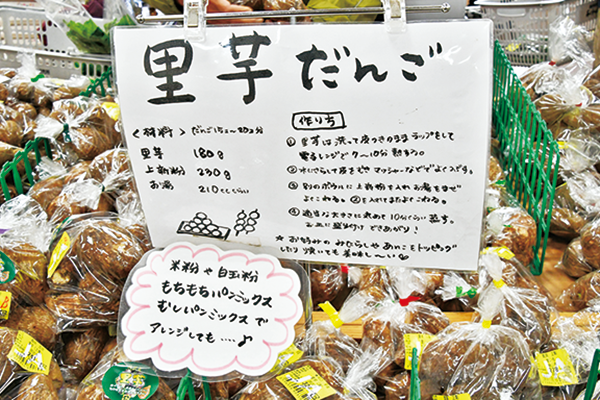 里芋だんご
<材料> だんご15こ〜20コ分
里芋 180g
上新粉 230g
お湯 210ccくらい
作り方
① 里芋は洗って皮つきのままラップをして
電子レンジで 7〜10分 熱する。
② 水にさらして皮をむき マッシャーなどでよくつぶす。
③ 別のボウルに上新粉を入れお湯をまぜ
よくこねる。②を入れてまたよくこねる。
④ 適当な大きさに丸めて 10分くらい蒸す。
できあがり!
☆ お好みの みたらしや あんこ をトッピング
したり 焼いても 美味し〜い♡
米粉や白玉粉
もちもちパンミックス
むしパンミックスで
アレンジしても‥‥♪